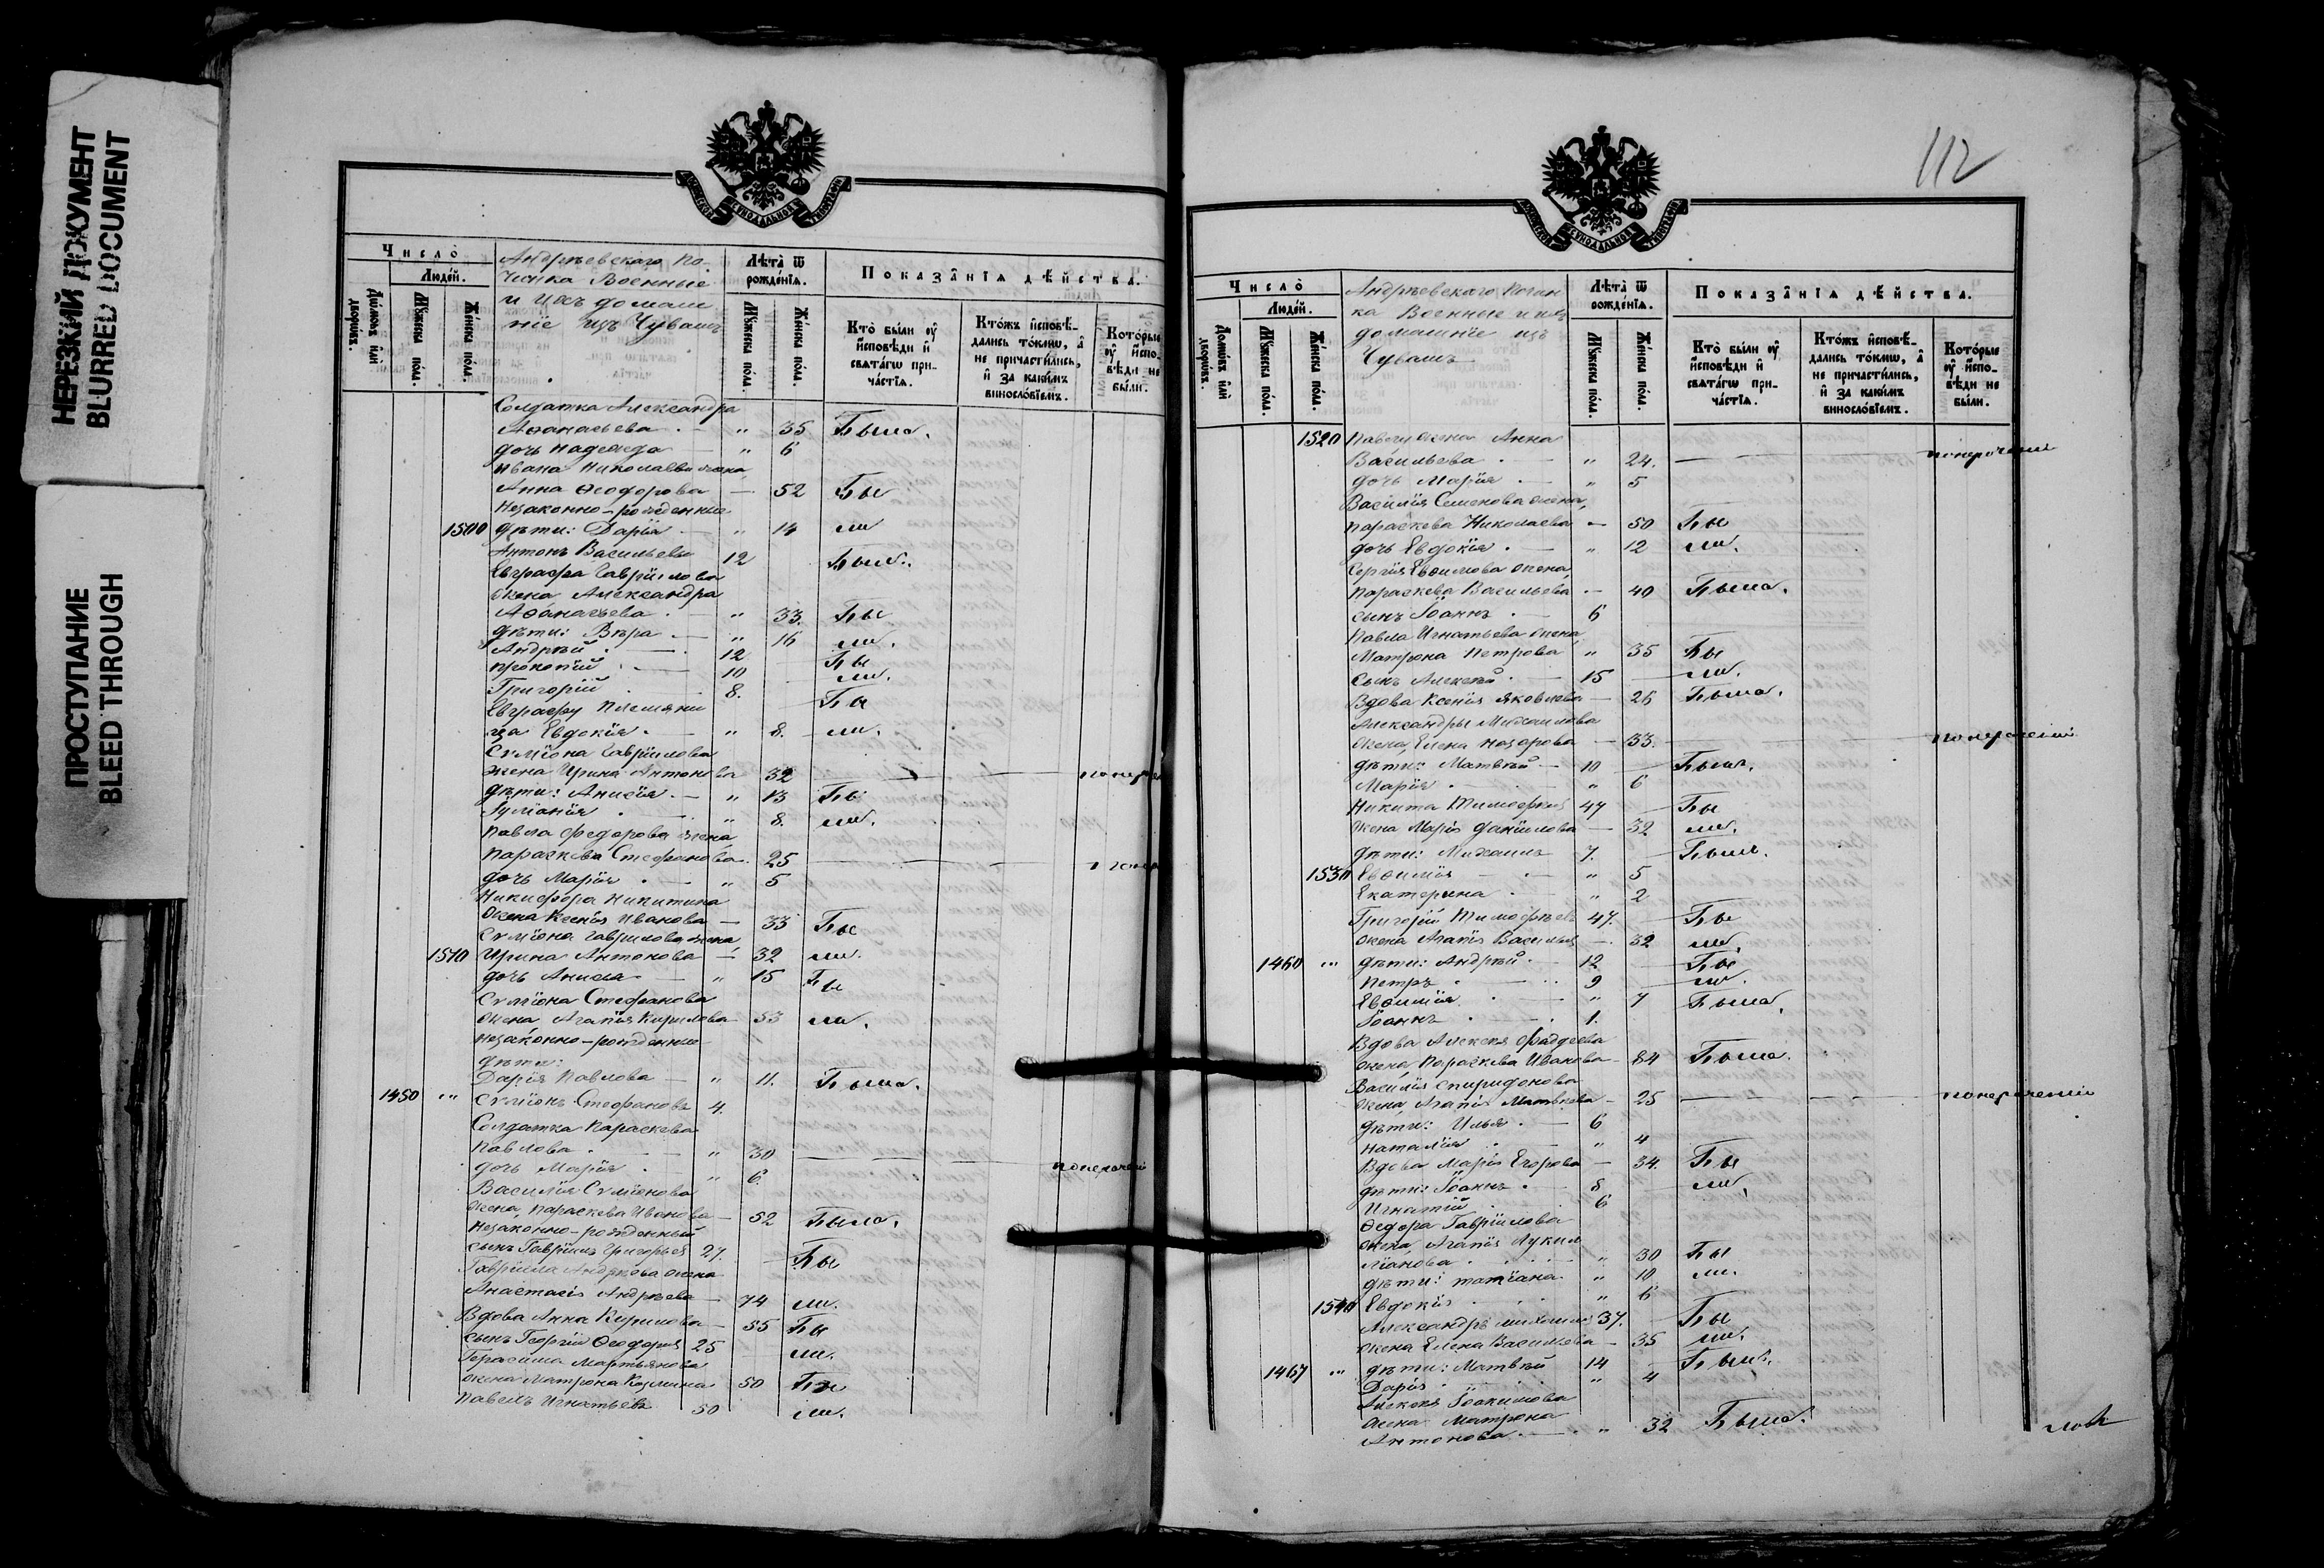 НЕРЕЗКИЙ ДОКУМЕНТ
BLURRED DOCUMENT
ПРОСТУПАНИЕ
BLEED THROUGH
МОСКОВСКОЙ СѴНОДАЛЬНОЙ ТИПОГРАФІИ
Число̀
Людéй.
Домѡ́въ и҆лѝ дворѡ́въ.
Мꙋ́жеска пóла.
Же́нска пóла.
Андрѣевскаго По-
чинка Военные
и ихъ домаш
ніе изъ Чувашъ
Лѣта̀ ѿ рожде́нїѧ.
Мꙋ́жеска пóла.
Же́нска пóла.
Показа̑нїѧ дѣ́йства.
Кто̀ бы́ли ᲂу҆ и҆сповѣди и҆ свѧта́гѡ причáстїѧ.
Кто́жъ и҆сповѣ́дались то́кмѡ, а҆ не причасти́лись, и҆ за каки́мъ винослóвїемъ.
Кото́рые ᲂу҆ и҆сповѣди не бы́ли.
Солдатка Александра
Аѳанасьева " 35 Была.
дочь Надежда " 6
Ивана Николаева жена
Анна Ѳеодорова — 52 Бы
Незаконно-рожденные
1500 дѣти: Дарія " 14 ли
Антонъ Васильевъ 12 Былъ.
Евграфа Гавріилова
жена Александра
Аѳанасьева " 33 Бы
дѣти: Вѣра " 16 ли.
Андрей 12 Бы
Прокопій 10 ли.
Григорій 8. Бы
Евграфу племянни
ца Евдокія " 8. ли.
Сѵмеона Гавріилова
жена Ирина Антонова 32
дѣти: Анисія " 13 Бы
Іуліанія " 8. ли.
Павла Федорова жена
Параскева Стефанова 25
дочь Марія " 5
Никифора Никитина
жена Ксенія Иванова — 33 Бы
Сѵмеона Гаврилова жена
1510 Ирина Антонова — 32 ли.
дочь Анисья " 15 Бы
Сѵмеона Стефанова
жена Агапія Кирилова 53 ли.
незаконно-рожденные
дѣти:
Дарія Павлова " 11. Была.
1450 " Сѵмеонъ Стефановъ 4.
Солдатка Параскева
Павлова " 30
дочь Марія " 6.
Василія Сѵмеонова
жена Параскева Иванова 52 Была.
Незаконно-рожденный
сынъ Гавріилъ Григорьев 27. Бы
Гавріила Андреева жена
Анастасія Андреева 74 ли.
Вдова Анна Кирилова 55 Бы
сынъ Георгій Ѳеодоров 25 ли.
Герасима Мартьянова
жена Матрона Козмина 50 Бы
Павелъ Игнатьевъ 50 ли.
112
МОСКОВСКОЙ СѴНОДАЛЬНОЙ ТИПОГРАФІИ
Число̀
Людéй.
Домѡ́въ и҆лѝ дворѡ́въ.
Мꙋ́жеска пóла.
Же́нска пóла.
Андрѣевскаго Почин
ка Военные и ихъ
домашніе изъ
Чувашъ
Лѣта̀ ѿ рожде́нїѧ.
Мꙋ́жеска пóла.
Же́нска пóла.
Показа̑нїѧ дѣ́йства.
Кто̀ бы́ли ᲂу҆ и҆сповѣди и҆ свѧта́гѡ причáстїѧ.
Кто́жъ и҆сповѣ́дались то́кмѡ, а҆ не причасти́лись, и҆ за каки́мъ винослóвїемъ.
Кото́рые ᲂу҆ и҆сповѣди не бы́ли.
1520 Павла жена Анна
Васильева " 24. по нераченію
дочь Марія " 5
Василія Семенова жена
Параскева Николаева — 50 Бы
дочь Евдокія " 12 ли.
Сергія Евѳимова жена
Параскева Васильева — 40 Была.
сынъ Іоаннъ 6
Павла Игнатьева жена
Матрона Петрова " 35 Бы
сынъ Алексѣй 15 ли.
Вдова Ксенія Яковлева 26 Была.
Александры Михаилова
жена Елена Назарова — 33. по нераченію
дѣти: Матвѣй 10 Былъ.
Марія " 6
Никита Тимоѳеев 47 Бы
жена Марія Даніилова — 32 ли.
дѣти: Михаилъ 7. Былъ.
1530 Евѳимія " 5
Екатерина " 2
Григорій Тимофѣевъ 47. Бы
жена Агапія Васильев — 32 ли.
1460 " дѣти: Андрѣй 12 Бы
Петръ 9 ли.
Евѳимія " 7 Была.
Іоаннъ 1.
Вдова Алексѣя Фаддеева
жена Параскева Иванова 84 Была.
Василія Спиридонова
жена Агапія Матвѣева 25 по нераченію
дѣти: Илья 6
Наталія " 4
Вдова Марія Егорова — 34. Бы
дѣти: Іоаннъ 8 ли.
Игнатій 6
Ѳедора Гавріилова
жена Агапія Лукил
ліанова " 30 Бы
дѣти: Татіана " 10 ли.
1540 Евдокія " 6
Александръ Михаилов 37. Бы
жена Елена Васильева — 35 ли.
1467 " дѣти: Матвѣй 14 Былъ.
Дарія " 4
Алексѣя Іоакимова
жена Матрона
Антонова " 32 Была.